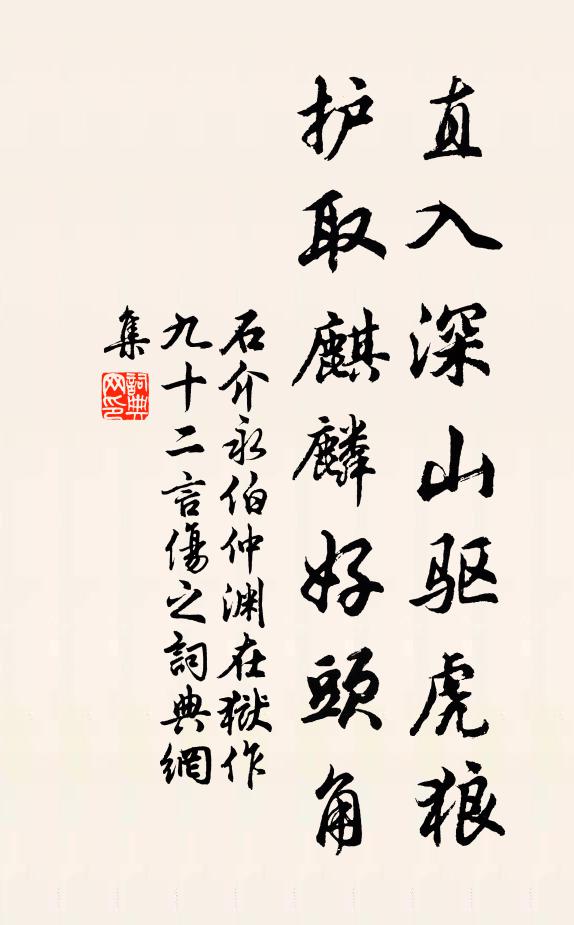 直入深山驱虎狼
护取麒麟好頭角
石介永伯仲渊在獄作
九十二言傷之詞典網
集
詞典网印